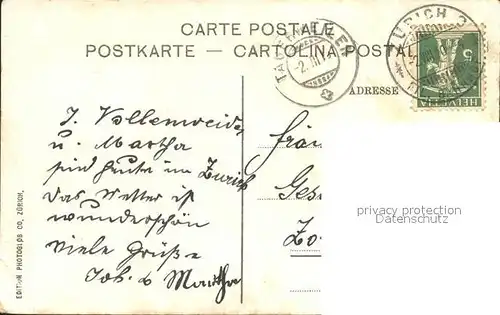 CARTE POSTALE
POSTKARTE — CARTOLINA POSTALE
ZÜRICH
2. III.
ADRESSE
5
HELVETIA
J. Vollenweider
u. Martha
sind heute in Zürich
das Wetter ist
wunderschön
viele Grüße
Joh. & Martha
Ges
Zo
privacy protection
Datenschutz
EDITION PHOTOGLOB CO., ZÜRICH.